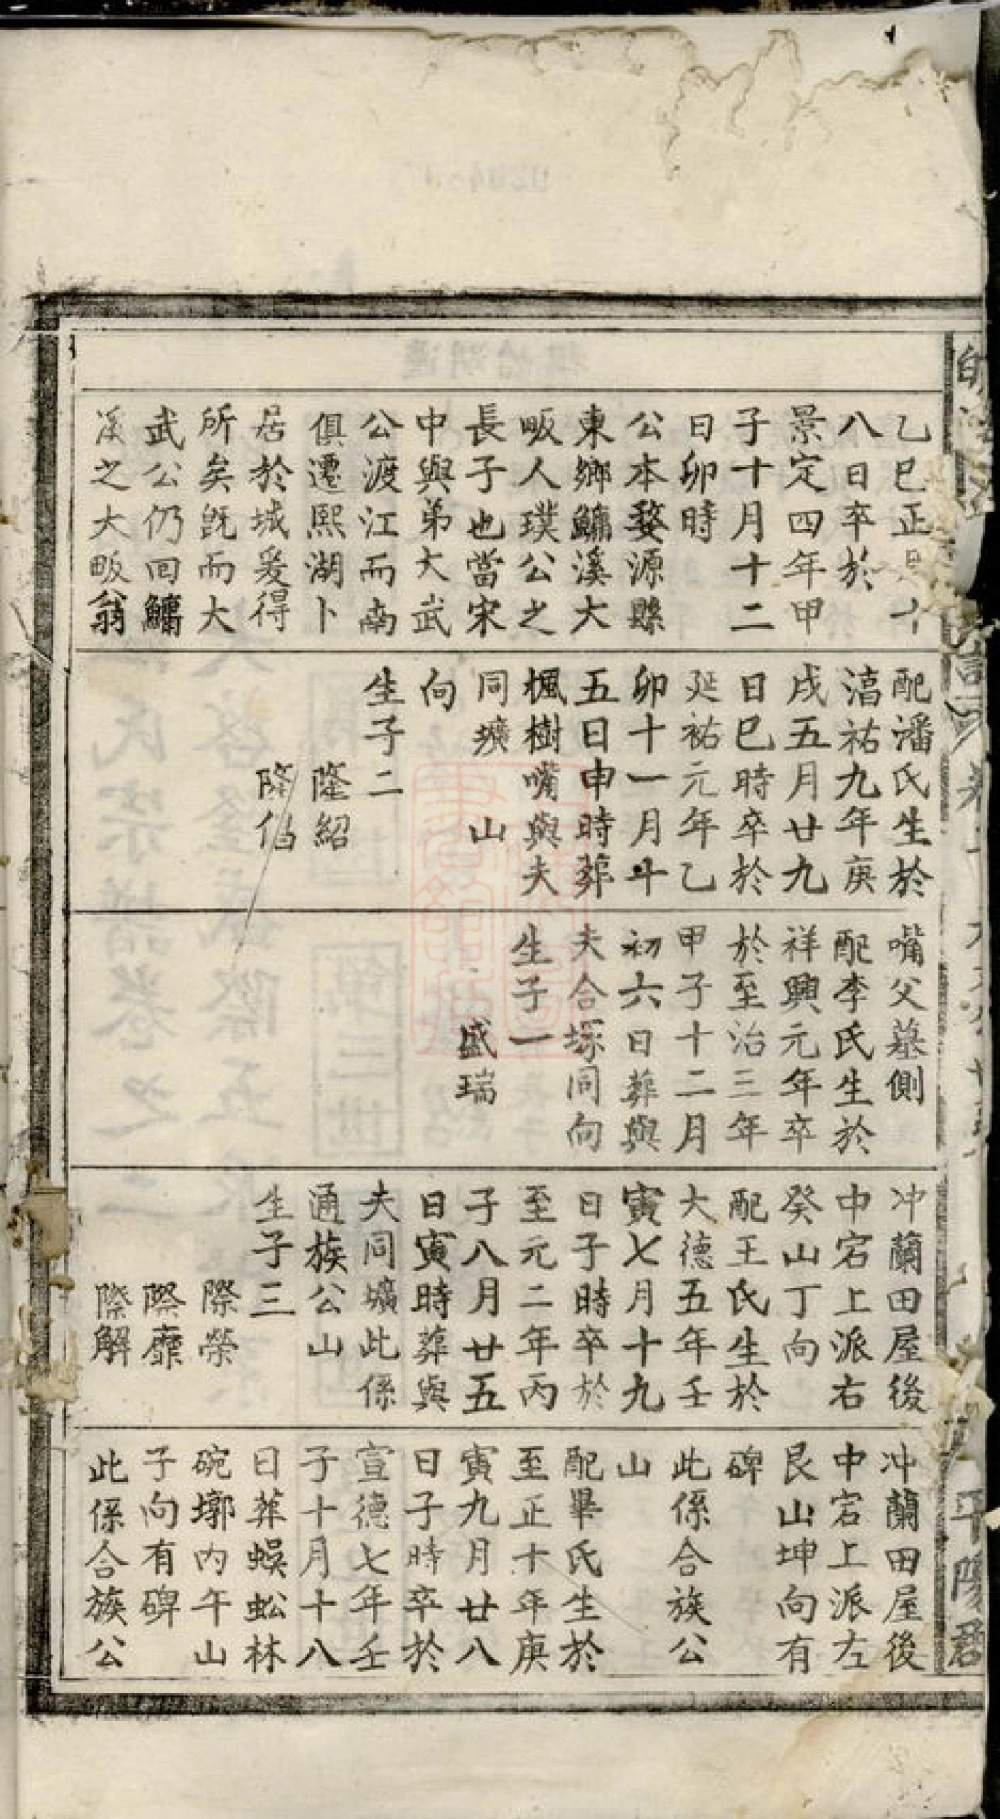 乙巳正月
八日卒於
景定四年甲
子十月十二
日卯時
公本婺源縣
東鄉鱅溪大
畈人璞公之
長子也當宋
中與弟大武
公渡江而南
俱遷熙湖卜
居於城爰得
所矣旣而大
武公仍回鱅
溪之大畈翁
配潘氏生於
淯祐九年庚
戌五月廿九
日巳時卒於
延祐元年乙
卯十一月廾
五日申時葬
楓樹嘴與夫
同壙 山
向
生子二
隆紹
隆
嘴父墓側
配李氏生於
祥興元年卒
於至治三年
甲子十二月
初六日葬與
夫合塚同向
生子一
盛瑞
冲蘭田屋後
中宕上派右
癸山丁向
配王氏生於
大德五年壬
寅七月十九
日子時卒於
至元二年丙
子八月廿五
日寅時葬與
夫同壙此係
通族公山
生子三
際榮
際靡
際解
冲蘭田屋後
中宕上派左
艮山坤向有
碑
此係合族公
山
配畢氏生於
至正十年庚
寅九月廿八
日子時卒於
宣德七年壬
子十月十八
日葬蜈蚣林
碗墎內午山
子向有碑
此係合族公
平陽郡